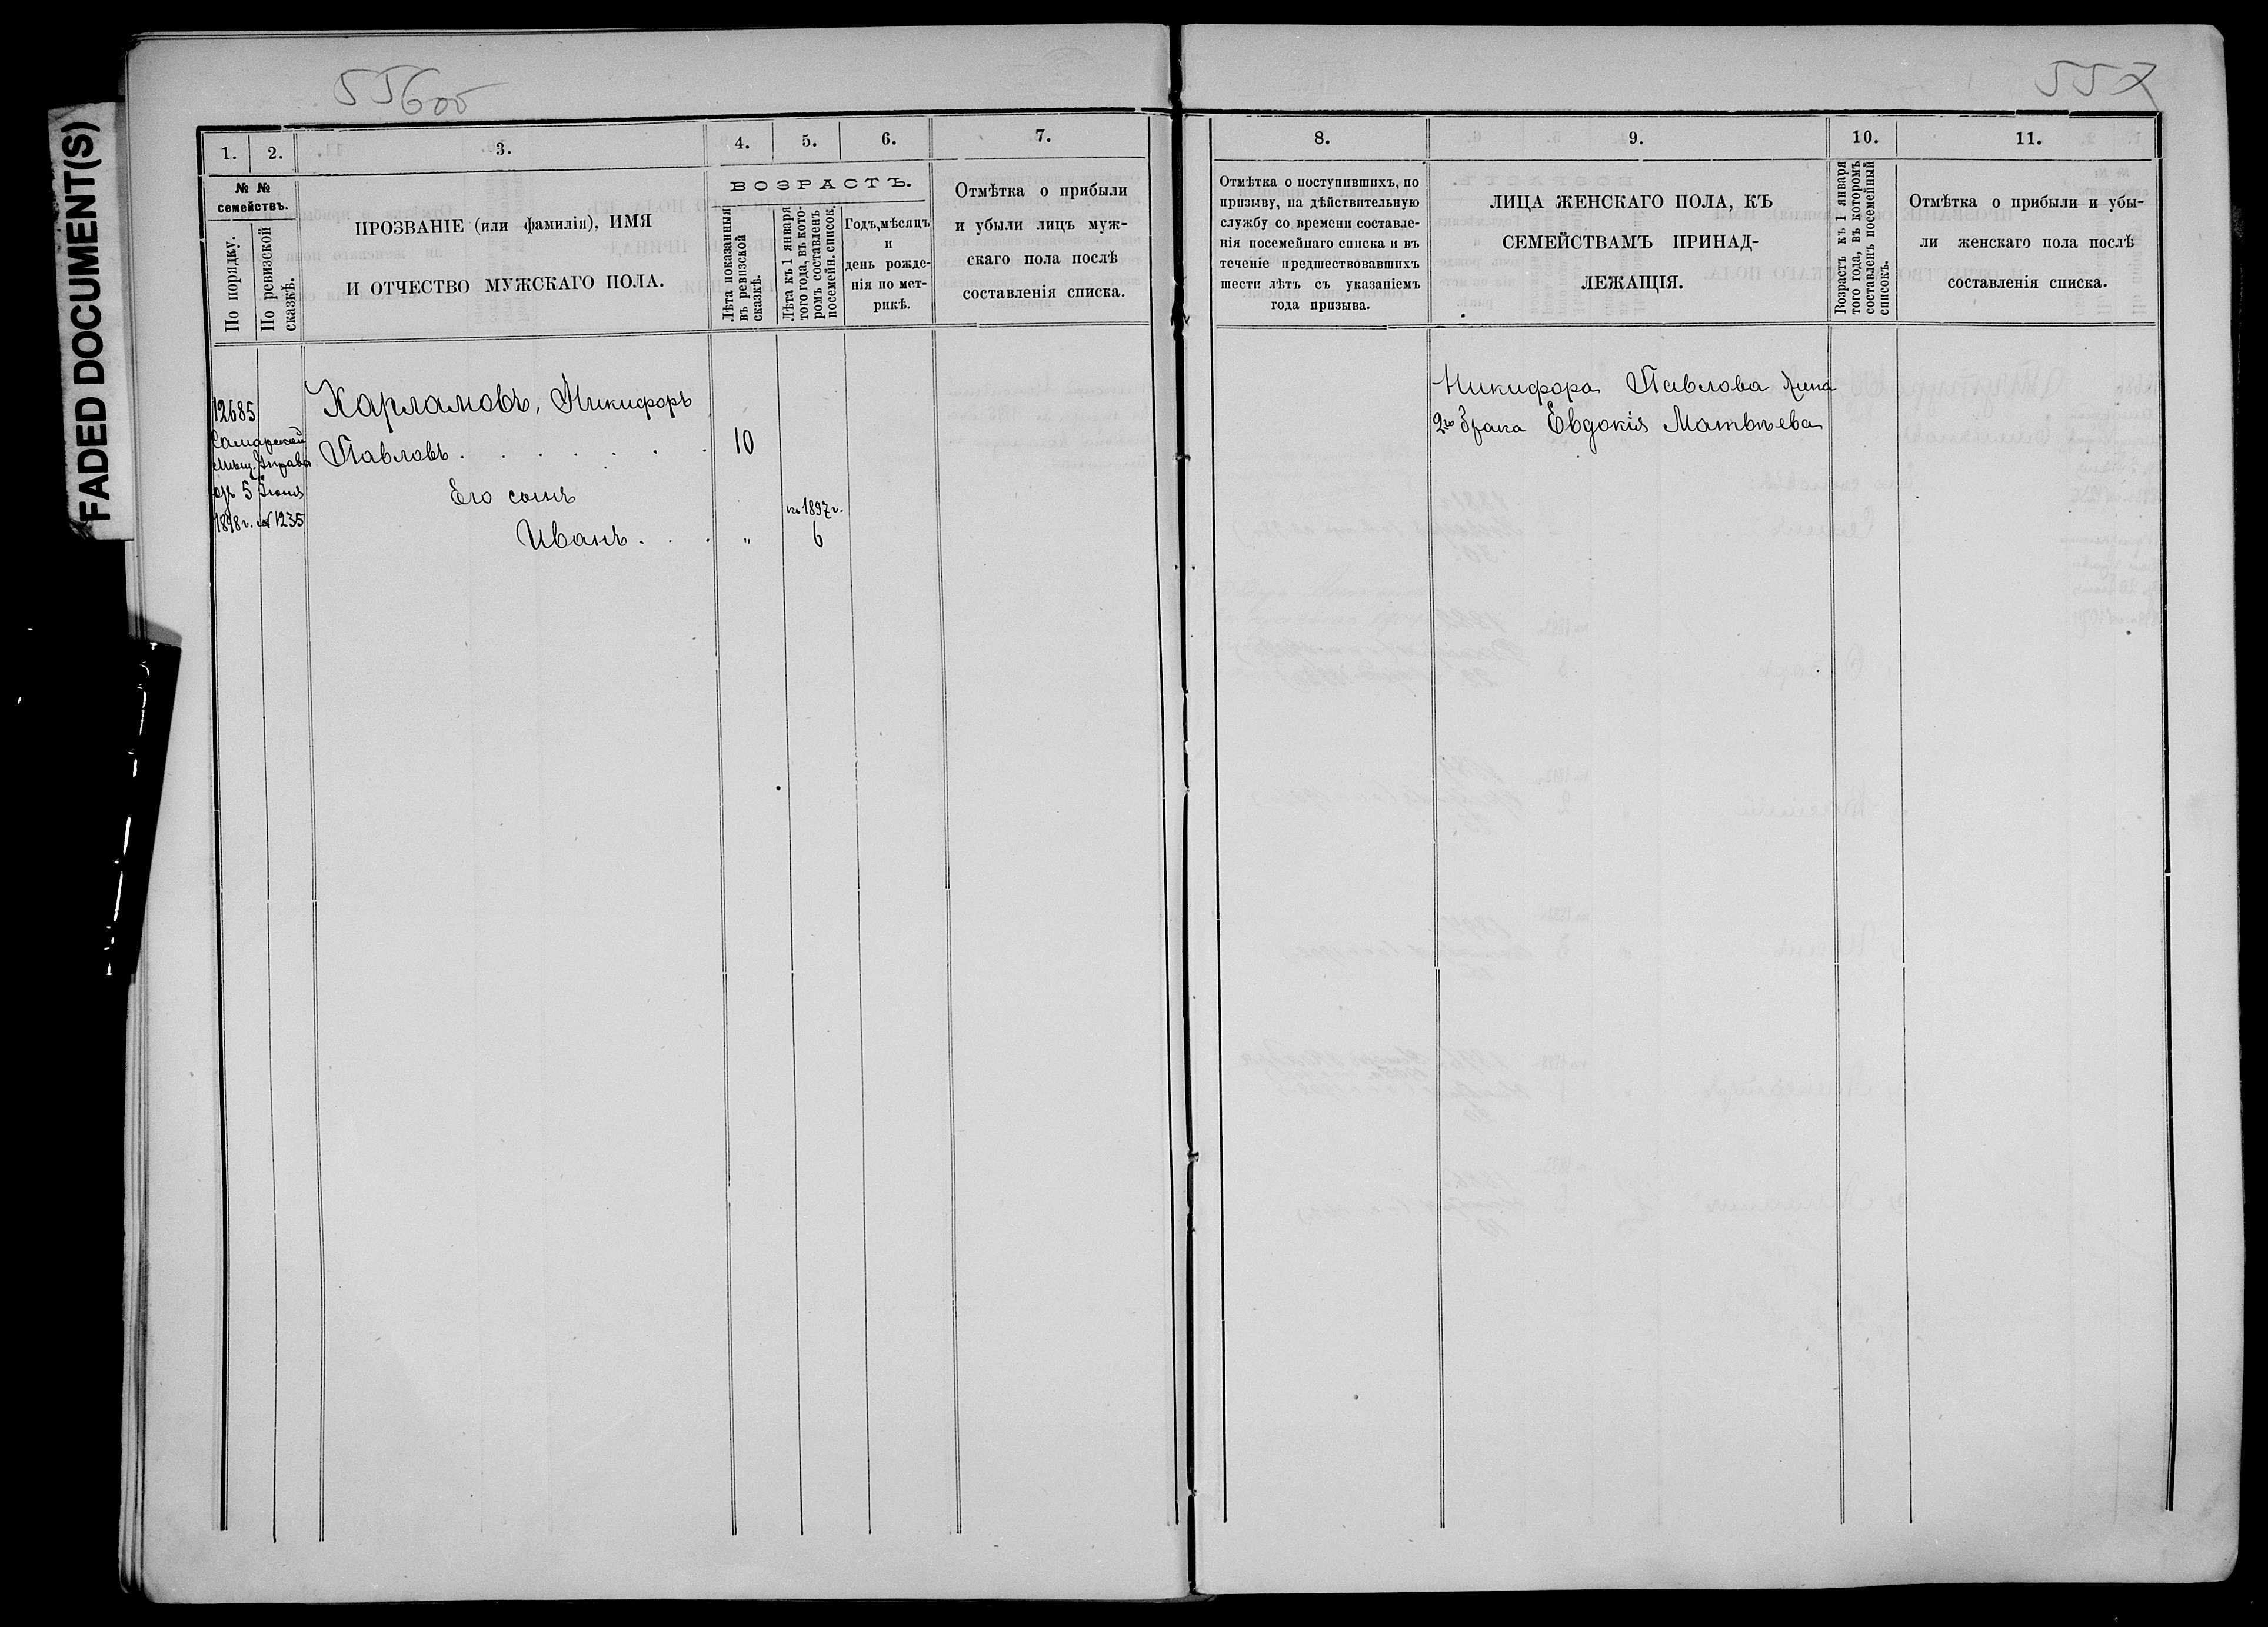 FADED DOCUMENT(S)
556об
557
1.
2.
3.
4.
5.
6.
7.
№ №
семействъ.
По порядку.
По ревизской
сказкѣ.
ПРОЗВАНІЕ (или фамилія), ИМЯ
И ОТЧЕСТВО МУЖСКАГО ПОЛА.
ВОЗРАСТЪ.
Лѣта показанныя
въ ревизской
сказкѣ.
Лѣта къ 1 января
того года, въ кото-
ромъ составленъ
посемейн. список.
Годъ, мѣсяцъ
и
день рожде-
нія по мет-
рикѣ.
Отмѣтка о прибыли
и убыли лицъ муж-
скаго пола послѣ
составленія списка.
12685
Самарской
Мѣщ. Управы
отъ 5 Іюня
1898 г. № 1235
Харламовъ, Никифоръ
Павловъ . . . . . . .
10
Его сынъ
Иванъ . . .
"
къ 1897 г.
6
8.
9.
10.
11.
Отмѣтка о поступившихъ, по
призыву, на дѣйствительную
службу со времени составле-
нія посемейнаго списка и въ
теченіе предшествовавшихъ
шести лѣтъ съ указаніемъ
года призыва.
ЛИЦА ЖЕНСКАГО ПОЛА, КЪ
СЕМЕЙСТВАМЪ ПРИНАД-
ЛЕЖАЩІЯ.
Возрастъ къ 1 января
того года, въ которомъ
составленъ посемейный
списокъ.
Отмѣтка о прибыли и убы-
ли женскаго пола послѣ
составленія списка.
Никифора Павлова жена
2го брака Евдокія Матвѣева